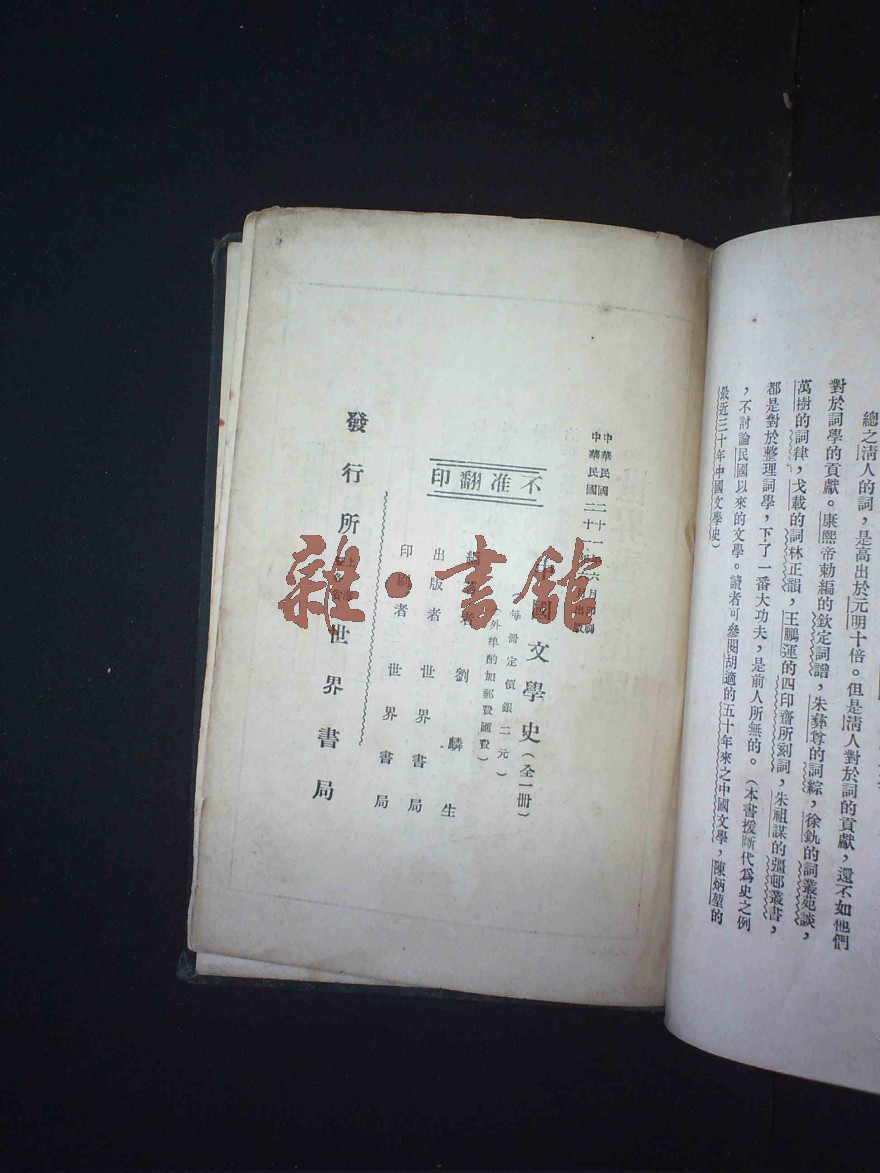 總之淸人的詞，是高出於元明十倍。但是淸人對於詞的貢獻，還不如他們
對於詞學的貢獻。康熙帝勅編的欽定詞譜，朱彝尊的詞綜，徐釚的詞叢苑談，
萬樹的詞律，戈載的詞林正韻，王鵬運的四印齋所刻詞，朱祖謀的彊邨叢書，
都是對於整理詞學，下了一番大功夫，是前人所無的。（本書援斷代爲史之例
，不討論民國以來的文學。讀者可參閱胡適的五十年來之中國文學，陳炳堃的
最近三十年中國文學史）
中華民國二十一年六月印刷
中華民國二十一年六月出版
國文學史（全一冊）
每冊定價銀二元
（外埠酌加郵費匯費）
不准翻印
劉麟生
出版者 世界書局
印刷者 世界書局
發行所 世界書局
雜·書館